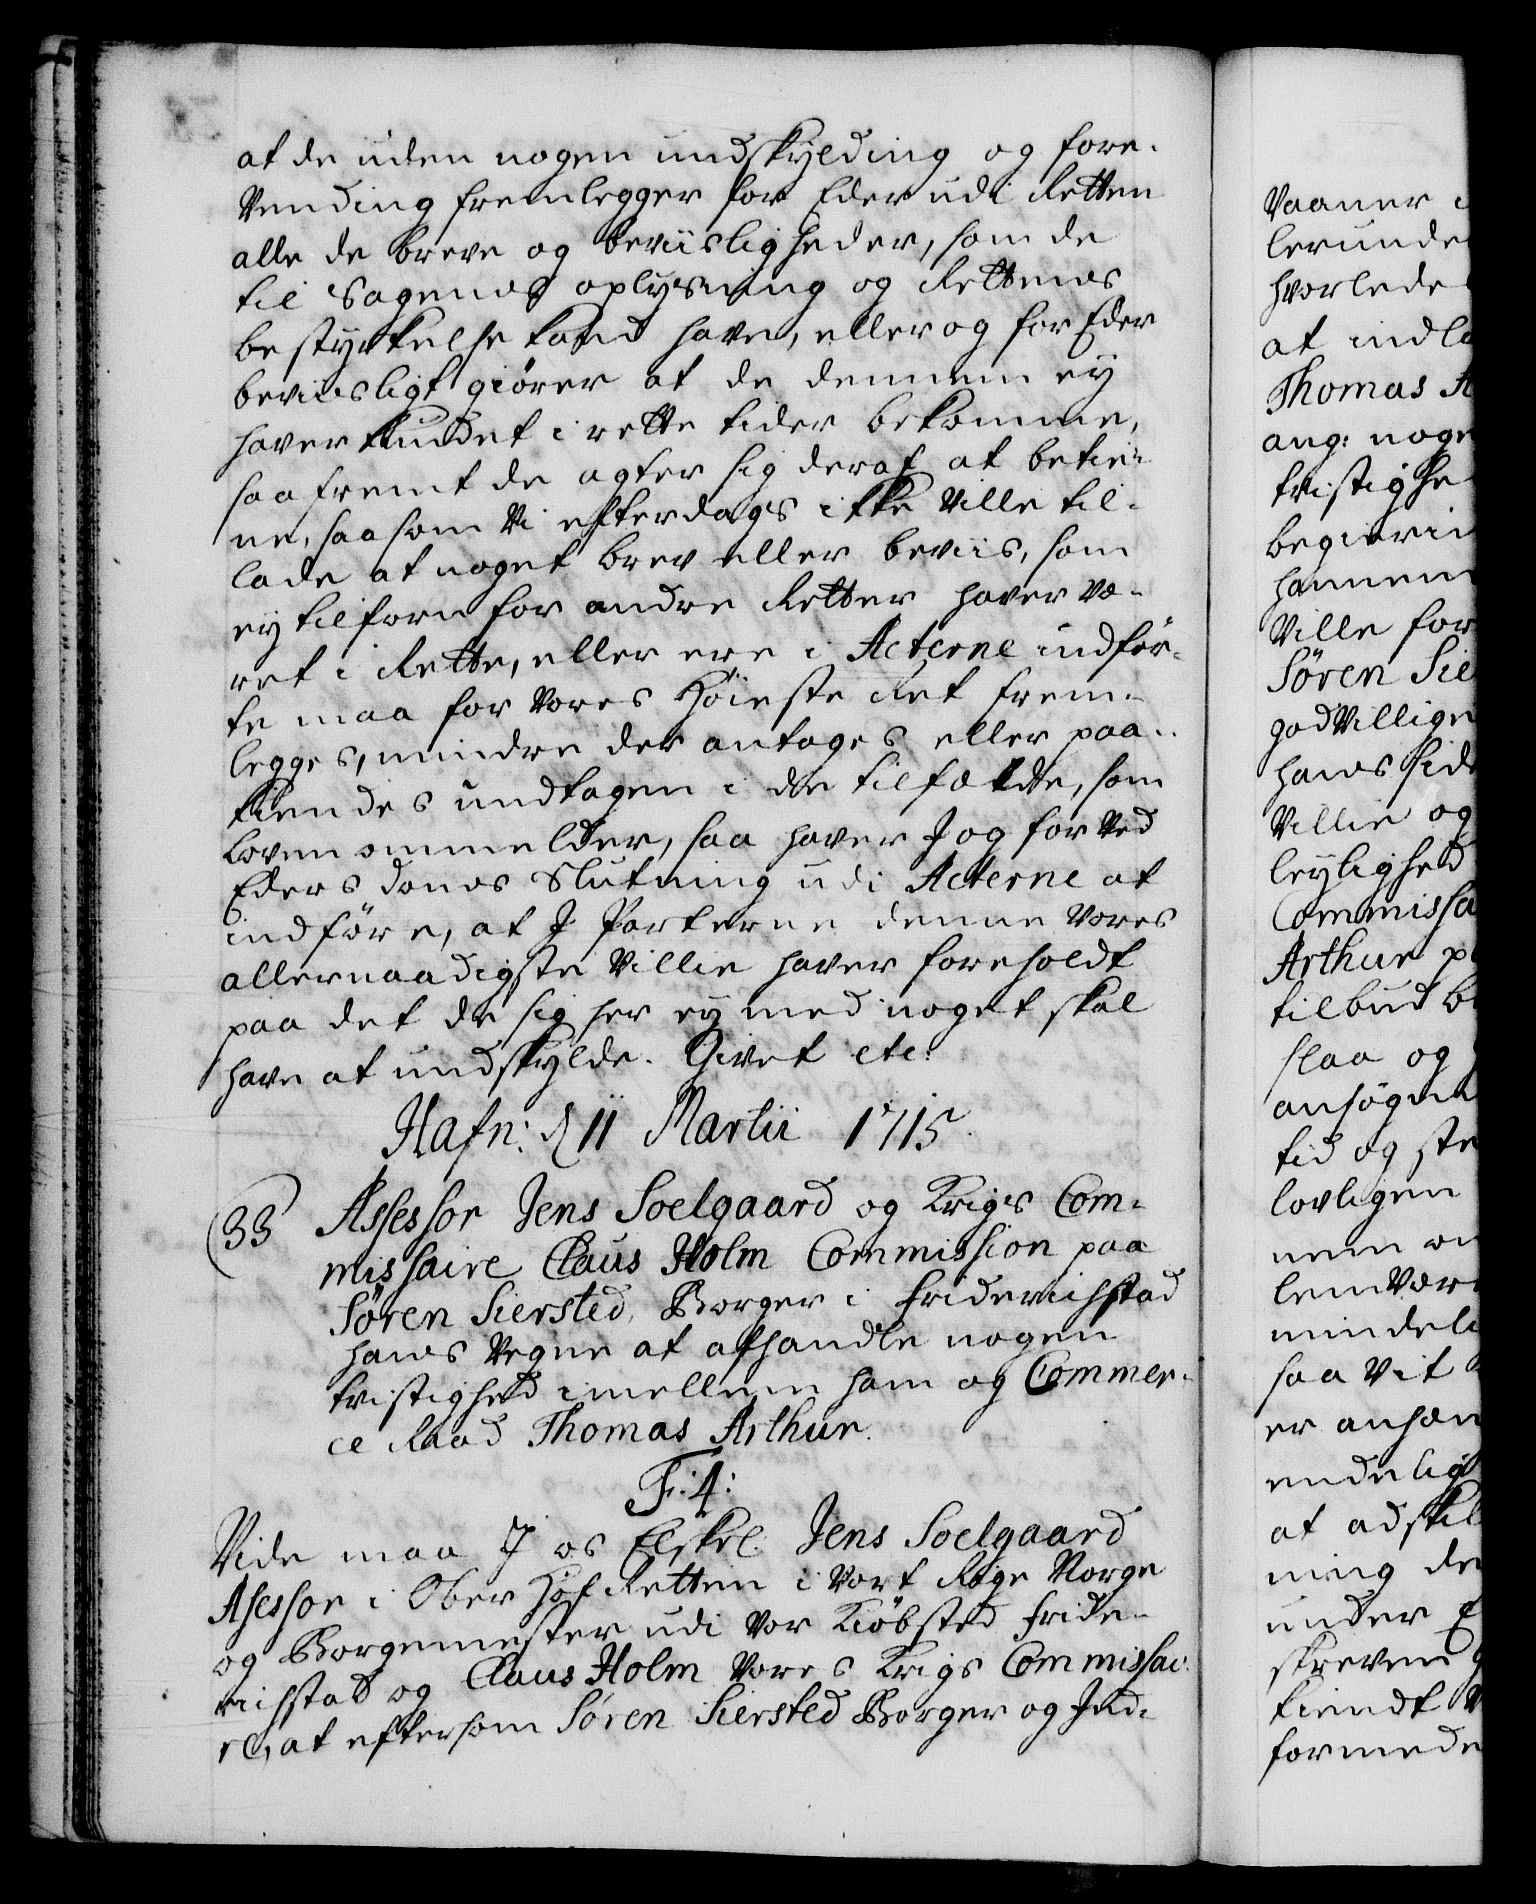 at de uden nogen undskylding og fore-
vending fremlegger for Eder udi Retten
alle de breve og beviisligheder, som de
til Sagens oplysning og Rettens
bestyrkelse kand have, eller og for Eder
beviisligt giører at de dennem ey
haver kundet i rette tider bekomme,
saafremt de agter sig deraf at betie-
ne, saasom Vi efterdags ikke Ville til-
lade at noget brev eller beviis, som
ey tilforn for andre Retter haver væ-
ret i Rette, eller ere i Acterne indför-
te maa for Vores Höieste Ret frem-
legges, mindre der antages eller paa-
kiendes undtagen i de tilfælde, som
Loven ommelder, saa haver I og for Ved
Eders doms Slutning udi Acterne at
indföre, at I Parterne denne Vores
allernaadigste Villie haver foreholdt
paa det de sig her ey med noget skal
have at undskylde. Givet etc:
Hafn: d 11 Martii 1715.
33 Assessor Jens Soelgaard og Krigs Com-
missaire Claus Holm Commission paa
Sören Siersted, Borger i Friderichstad
hans Vegne at afhandle nogen
tvistighed imellem ham og Commer-
ce Raad Thomas Arthur.
F: 4:
Vide maa I os Elskel. Jens Soelgaard
Asessor i Ober Hof Retten i Vort Rige Norge
og Borgemester udi Vor Kiöbsted Fride-
richstad og Claus Holm Vores Krigs Commissai-
re, at eftersom Sören Siersted Borger og Ind-
Vaaner i
lerunde
hvorlede
at indl
Thomas A
ang: noge
tvistighe
begierin
hannem
Ville for
Sören Sie
godVillige
hans Side
Villie og
leylighed
Commissa
Arthur p
tilbud b
slaa og
ansøgn
tid og ste
lovligen
nem
lemVær
mindeli
saa Vit
er anhæn
endelig
at adskil
ning de
under E
skreven
kiendt
formede